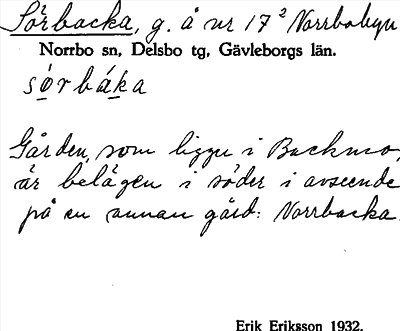 Sörbacka, g. å nr 17² Norrbobyn
Norrbo sn, Delsbo tg, Gävleborgs län.
sǫ́rbáka
Gården, som ligger i Backmo,
är belägen i söder i avseende
på en annan gård: Norrbacka.
Erik Eriksson 1932.